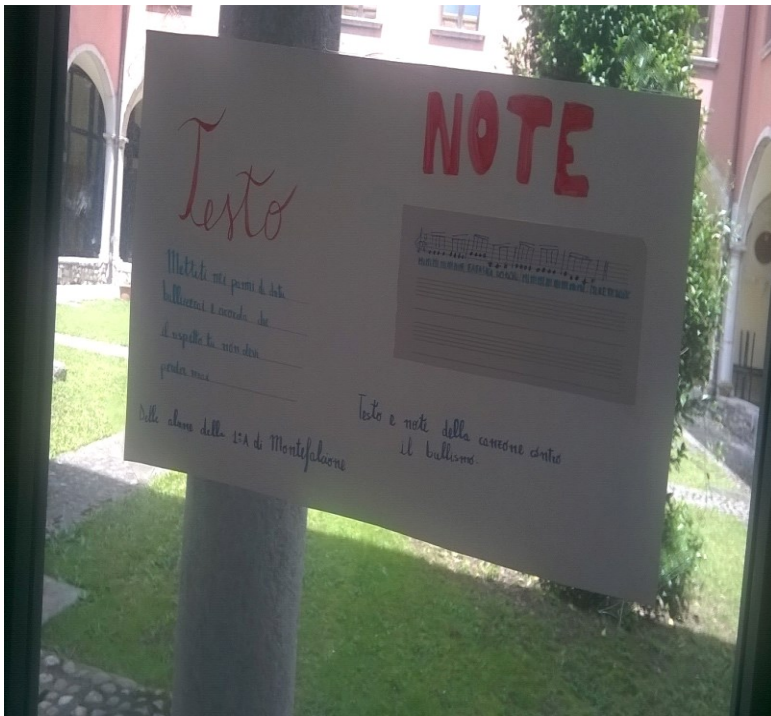 Testo
Mettiti nei panni di chi
bullizzerai e ricorda che
il rispetto tu non devi
perder mai
Dalle alunne della 1°A di Montefalcone
NOTE
Testo e note della canzone contro
il bullismo.